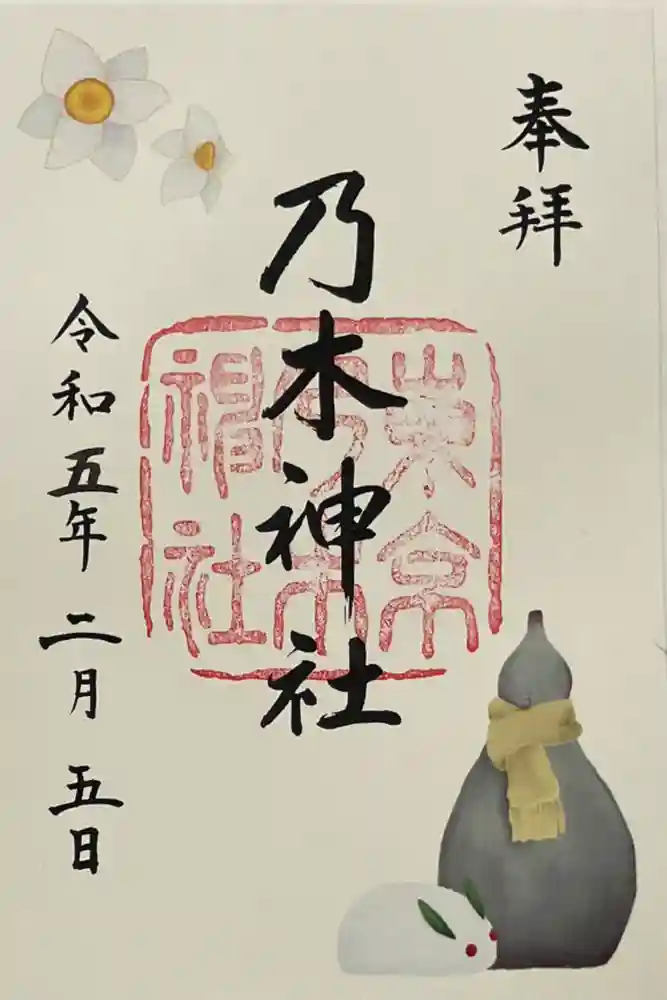 奉拝
乃木神社
東京
乃木
神社
令和五年二月五日